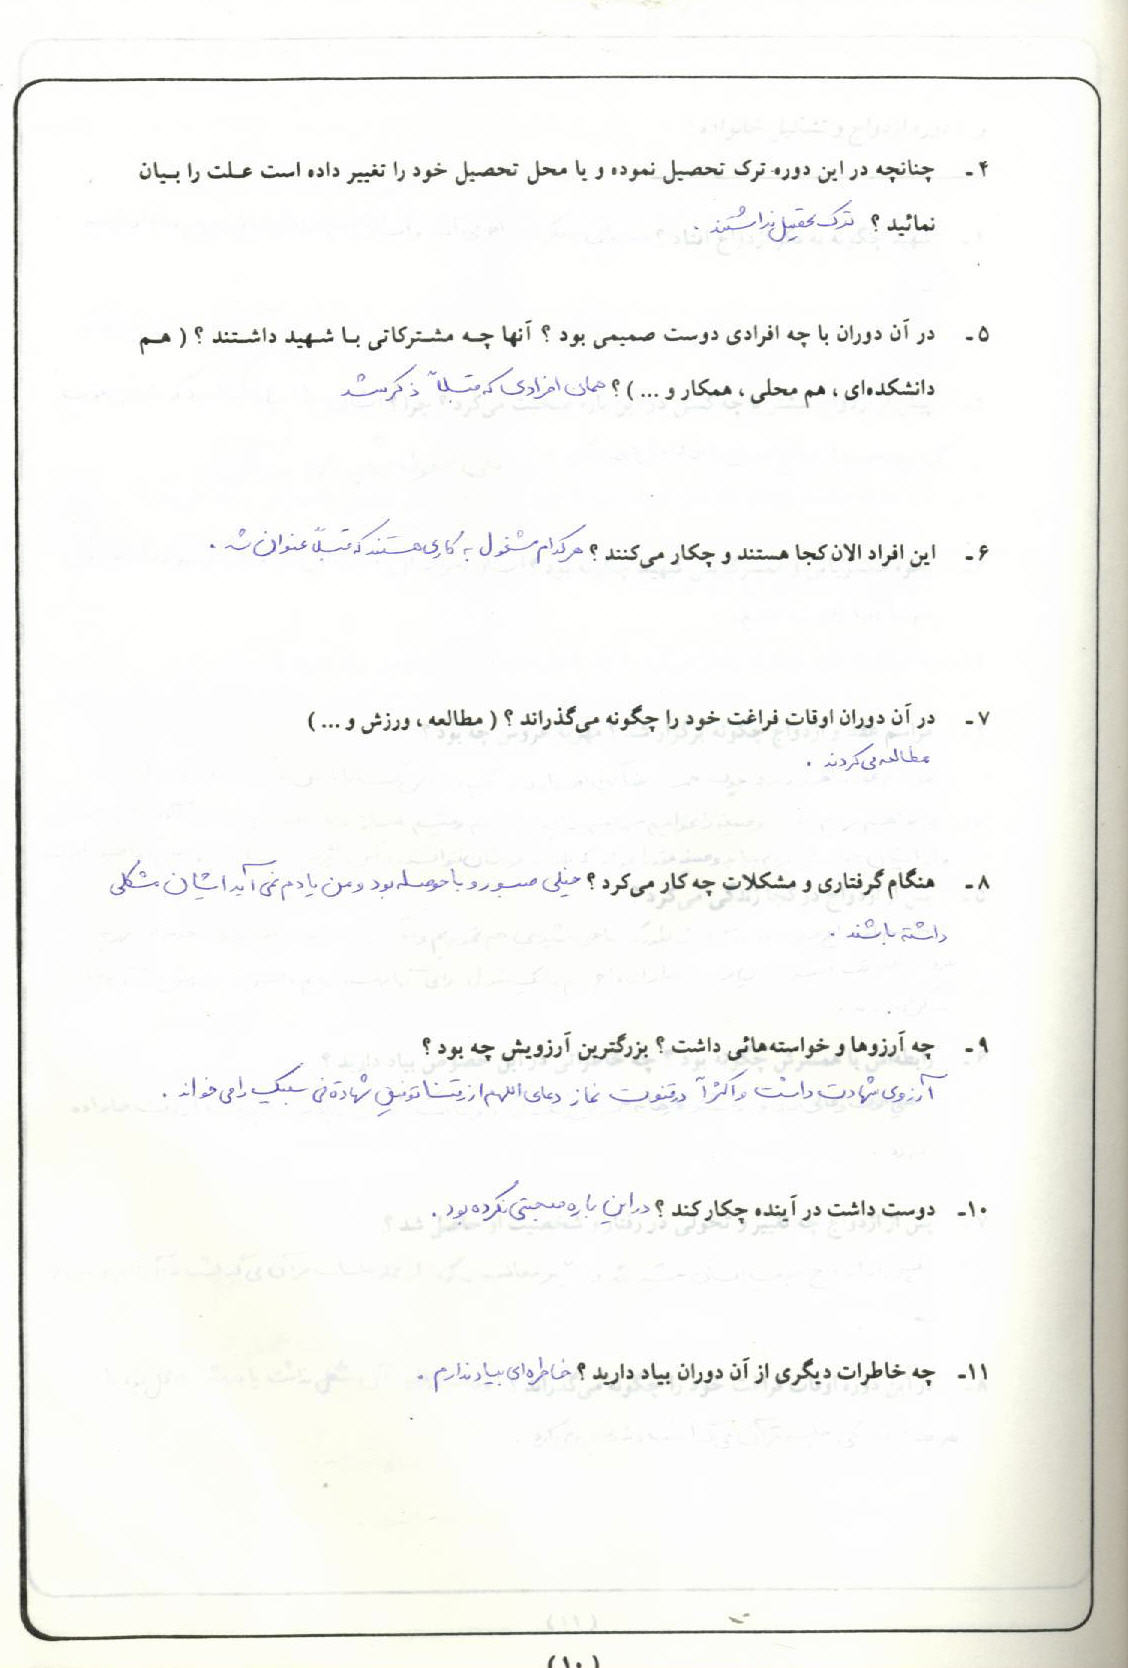 ۴ـ چنانچه در این دوره ترک تحصیل نموده و یا محل تحصیل خود را تغییر داده است علت را بیان
نمائید ؟ ترک تحصیل نداشتند .
۵ـ در آن دوران با چه افرادی دوست صمیمی بود ؟ آنها چه مشترکاتی با شهید داشتند ؟ ( هم
دانشکده‌ای ، هم محلی ، همکار و ... ) ؟ همان افرادی که قبلاً ذکر شد
۶ـ این افراد الان کجا هستند و چکار می‌کنند ؟ هر کدام مشغول به کاری هستند که قبلاً عنوان شد .
۷ـ در آن دوران اوقات فراغت خود را چگونه می‌گذراند ؟ ( مطالعه ، ورزش و ... )
مطالعه می کردند .
۸ـ هنگام گرفتاری و مشکلات چه کار می‌کرد ؟ خیلی صبور و با حوصله بود و من یادم نمی آید ایشان مشکلی
داشته باشند .
۹ـ چه آرزوها و خواسته‌هائی داشت ؟ بزرگترین آرزویش چه بود ؟
آرزوی شهادت داشت و اکثراً در قنوت نماز دعای اللهم ارزقنا توفیق شهادة فی سبیلک را می خواند .
۱۰ـ دوست داشت در آینده چکار کند ؟ در این باره صحبتی نکرده بود .
۱۱ـ چه خاطرات دیگری از آن دوران بیاد دارید ؟ خاطره‌ای بیاد ندارم .
(۱۰)